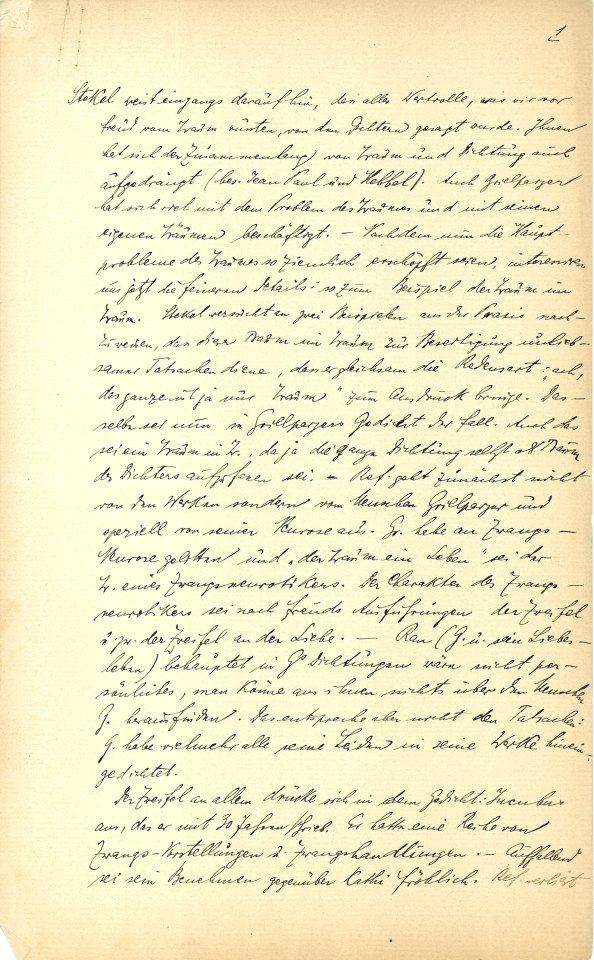 1
Stekel weist eingangs darauf hin, dass alles Wertvolle, was wir vor
Freud vom Traum wüssten, von den Dichtern gesagt wurde. Ihnen
hat sich der Zusammenhang von Traum und Dichtung auch
aufgedrängt (bes. Jean Paul und Hebbel). Auch Grillparzer
hat sich viel mit dem Problem des Traumes und mit seinen
eigenen Träumen beschäftigt. – Nachdem nun die Haupt-
probleme des Traumes so ziemlich erschöpft seien, interessiren
uns jetzt die feineren Details: so zum Beispiel der Traum im
Traum. Stekel versucht an zwei Beispielen aus der Praxis nach-
zuweisen, dass dieser Traum im Traum zur Beseitigung unlieb-
samer Tatsachen diene, dass er gleichsam die Redensart: „ach,
das ganze ist ja nur Traum" zum Ausdruck bringe. Das-
selbe sei nun in Grillparzers Gedicht der Fall. Auch das
sei ein Traum in Tr., da ja die ganze Dichtung selbst als Traum
des Dichters aufzufassen sei. – Ref. geht zunächst nicht
von den Werken sondern vom Menschen Grillparzer und
speziell von seiner Neurose aus. Gr. habe an Zwangs-
Neurose gelitten und „der Traum ein Leben" sei der
Tr. eines Zwangsneurotikers. Der Charakter des Zwangs-
neurotikers sei nach Freuds Ausführungen der Zweifel
u. zw. der Zweifel an der Liebe. – Rau (G. u. sein Liebes-
leben) behauptet in Gs Dichtungen wäre nicht per-
sönliches, man könne aus ihnen nichts über den Menschen
G. herausfinden. Das entspreche aber nicht den Tatsachen:
G. habe vielmehr alle seine Leiden in seine Werke hinein-
gedichtet.
Der Zweifel an allem drücke sich in dem Gedicht: Incubus
aus, das er mit 30 Jahren schrieb. Er hatte eine Reihe von
Zwangs-Vorstellungen u. Zwangshandlungen. – Auffallend
sei sein Benehmen gegenüber Kathi Fröhlich. Ref. verliest